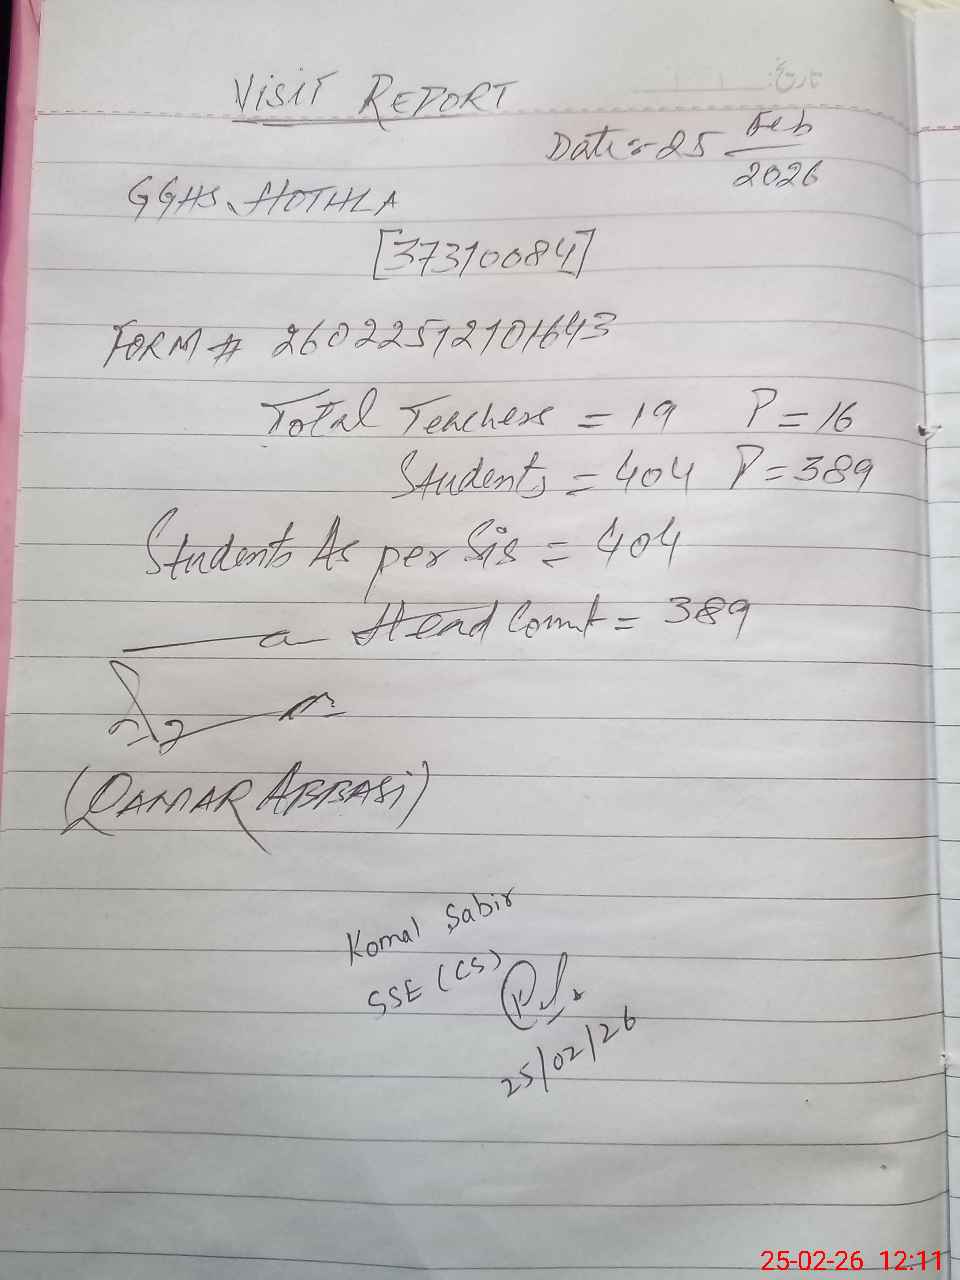 تاریخ:
VISIT REPORT
Date:- 25 Feb
2026
GGHS, HOTHLA
[37310084]
FORM # 26022512101643
Total Teachers = 19 P = 16
Students = 404 P = 389
Students As per Sis = 404
Head Count = 389
(QAMAR ABBASI)
Komal Sabir
SSE (CS)
25/02/26
25-02-26 12:11